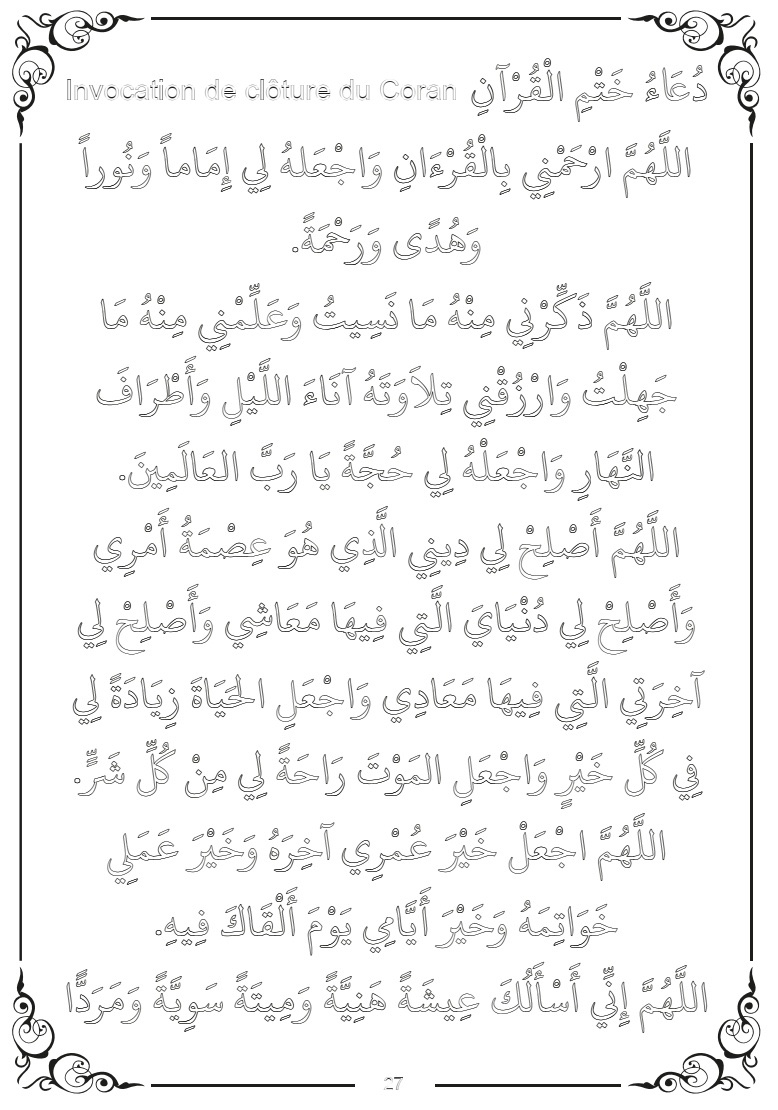 دُعَاءُ خَتْمِ الْقُرْآنِ Invocation de clôture du Coran
اللَّهُمَّ ارْحَمْنِي بِالْقُرْءَانِ وَاجْعَلهُ لِي إِمَاماً وَنُوراً
وَهُدًى وَرَحْمَةً.
اللَّهُمَّ ذَكِّرْنِي مِنْهُ مَا نَسِيتُ وَعَلِّمْنِي مِنْهُ مَا
جَهِلْتُ وَارْزُقْنِي تِلاَوَتَهُ آنَاءَ اللَّيْلِ وَأَطْرَافَ
النَّهَارِ وَاجْعَلْهُ لِي حُجَّةً يَا رَبَّ العَالَمِينَ.
اللَّهُمَّ أَصْلِحْ لِي دِينِي الَّذِي هُوَ عِصْمَةُ أَمْرِي
وَأَصْلِحْ لِي دُنْيَايَ الَّتِي فِيهَا مَعَاشِي وَأَصْلِحْ لِي
آخِرَتِي الَّتِي فِيهَا مَعَادِي وَاجْعَلِ الحَيَاةَ زِيَادَةً لِي
فِي كُلِّ خَيْرٍ وَاجْعَلِ المَوْتَ رَاحَةً لِي مِنْ كُلِّ شَرٍّ.
اللَّهُمَّ اجْعَلْ خَيْرَ عُمْرِي آخِرَهُ وَخَيْرَ عَمَلِي
خَوَاتِمَهُ وَخَيْرَ أَيَّامِي يَوْمَ أَلْقَاكَ فِيهِ.
اللَّهُمَّ إِنِّي أَسْأَلُكَ عِيشَةً هَنِيَّةً وَمِيتَةً سَوِيَّةً وَمَرَدًّا
27